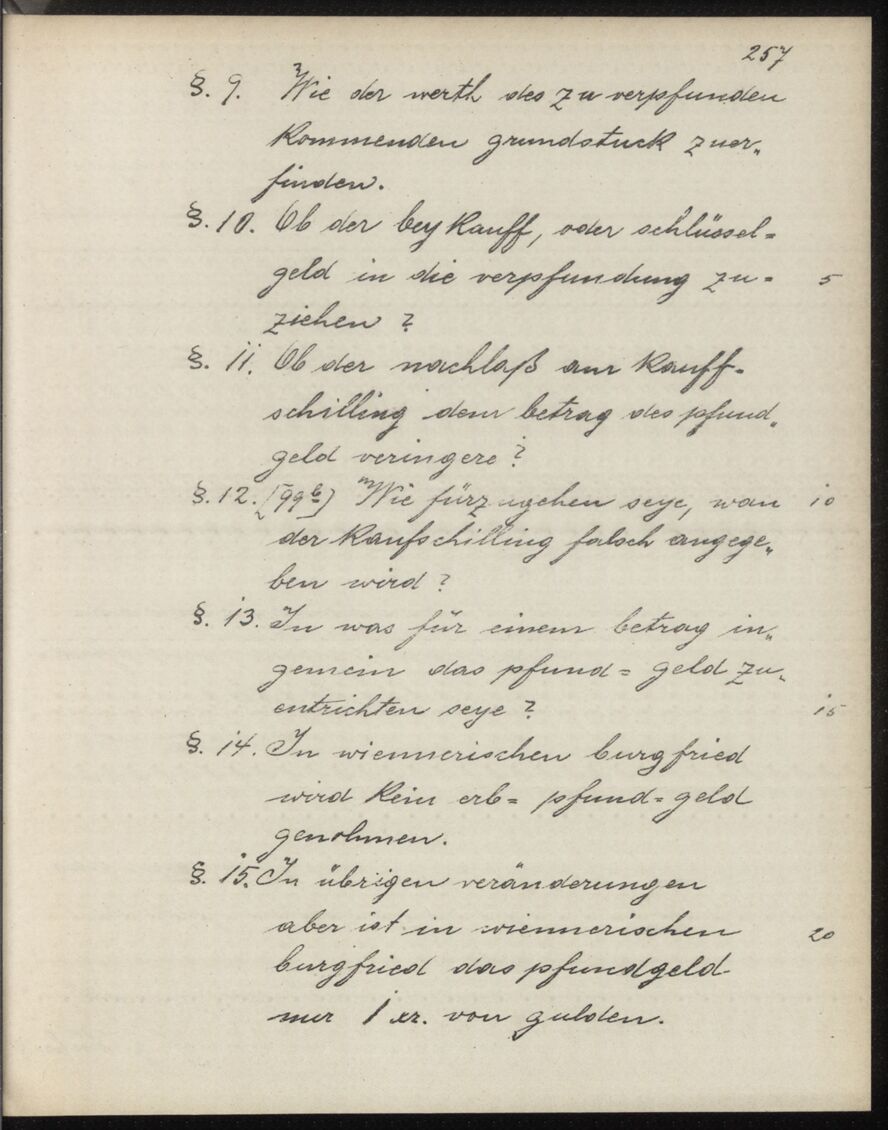 257
§. 9. Wie der werth des zu verpfunden
kommenden grundstuck zuer„
finden.
§. 10. Ob der bey kauff, oder schlüssel=
geld in die verpfundung zu= 5
ziehen?
§. 11. Ob der nachlaß am kauff=
schilling dem betrag des pfund„
geld veringere?
§. 12. [99b] Wie fürzugehen seye, wan 10
der kaufschilling falsch angege„
ben wird?
§. 13. In was für einem betrag in„
gemein das pfund= geld zu„
entrichten seye? 15
§. 14. In wiennerischen burgfried
wird kein erb= pfund=geld
genohmen.
§. 15. In übrigen veränderungen
aber ist in wiennerischen 20
burgfried das pfundgeld
nur 1 xr. von gulden.